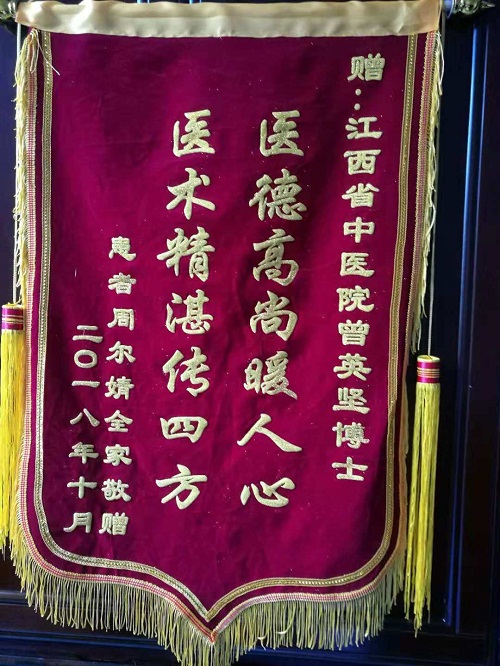 赠：江西省中医院曾英坚博士
医德高尚暖人心
医术精湛传四方
患者周尔婧全家敬赠
二〇一八年十月